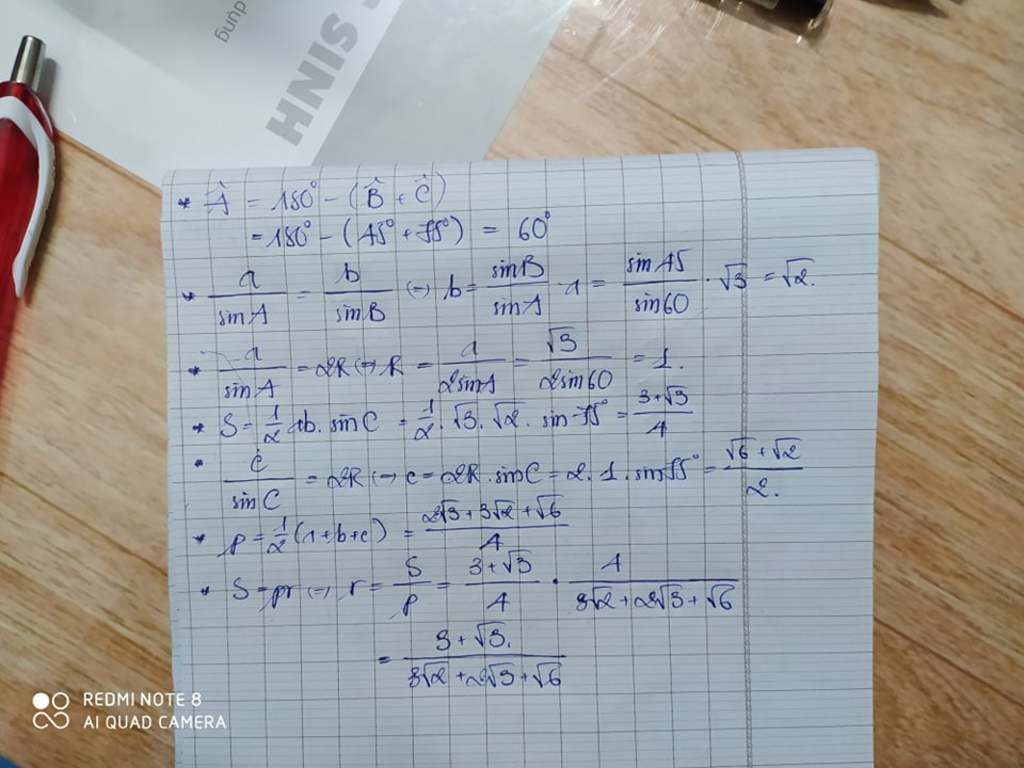 dụng
SINH
* Â = 180° - (B̂ + Ĉ)
= 180° - (45° + 75°) = 60°
* a/sinA = b/sinB ↔ b = sinB/sinA · a = sin45/sin60 · √3 = √2.
* a/sinA = 2R ↔ R = a/2sinA = √3/2sin60 = 1.
* S = 1/2 ab. sinC = 1/2 . √3 . √2 . sin 75° = 3+√3/4
* c/sinC = 2R ↔ c = 2R . sinC = 2 . 1 . sin75° = √6+√2/2.
* p = 1/2 (a+b+c) = 2√3+3√2+√6/4
* S = pr ↔ r = S/p = 3+√3/4 · 4/3√2+2√3+√6
= 3+√3./3√2+2√3+√6
REDMI NOTE 8
AI QUAD CAMERA